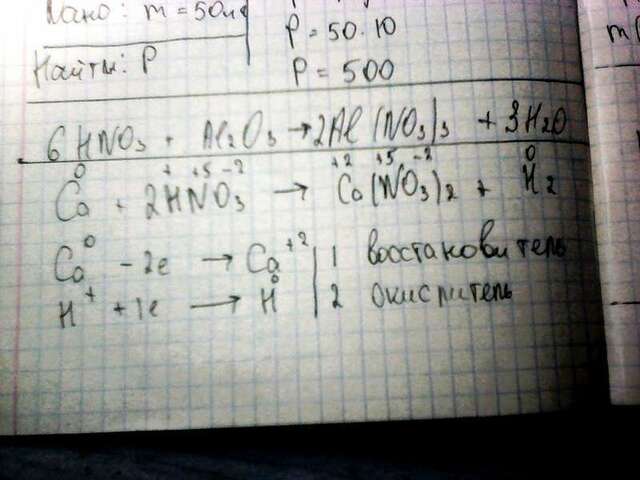 Дано: m = 50
Найти: P
P = 50 · 10
P = 500
m
6HNO₃ + Al₂O₃ → 2Al(NO₃)₃ + 3H₂O
Ca⁰ + 2H⁺N⁺⁵O₃⁻² → Ca⁺²(N⁺⁵O₃⁻²)₂ + H₂⁰
Ca⁰ - 2e → Ca⁺² | 1 восстановитель
H⁺ + 1e → H⁰ | 2 окислитель